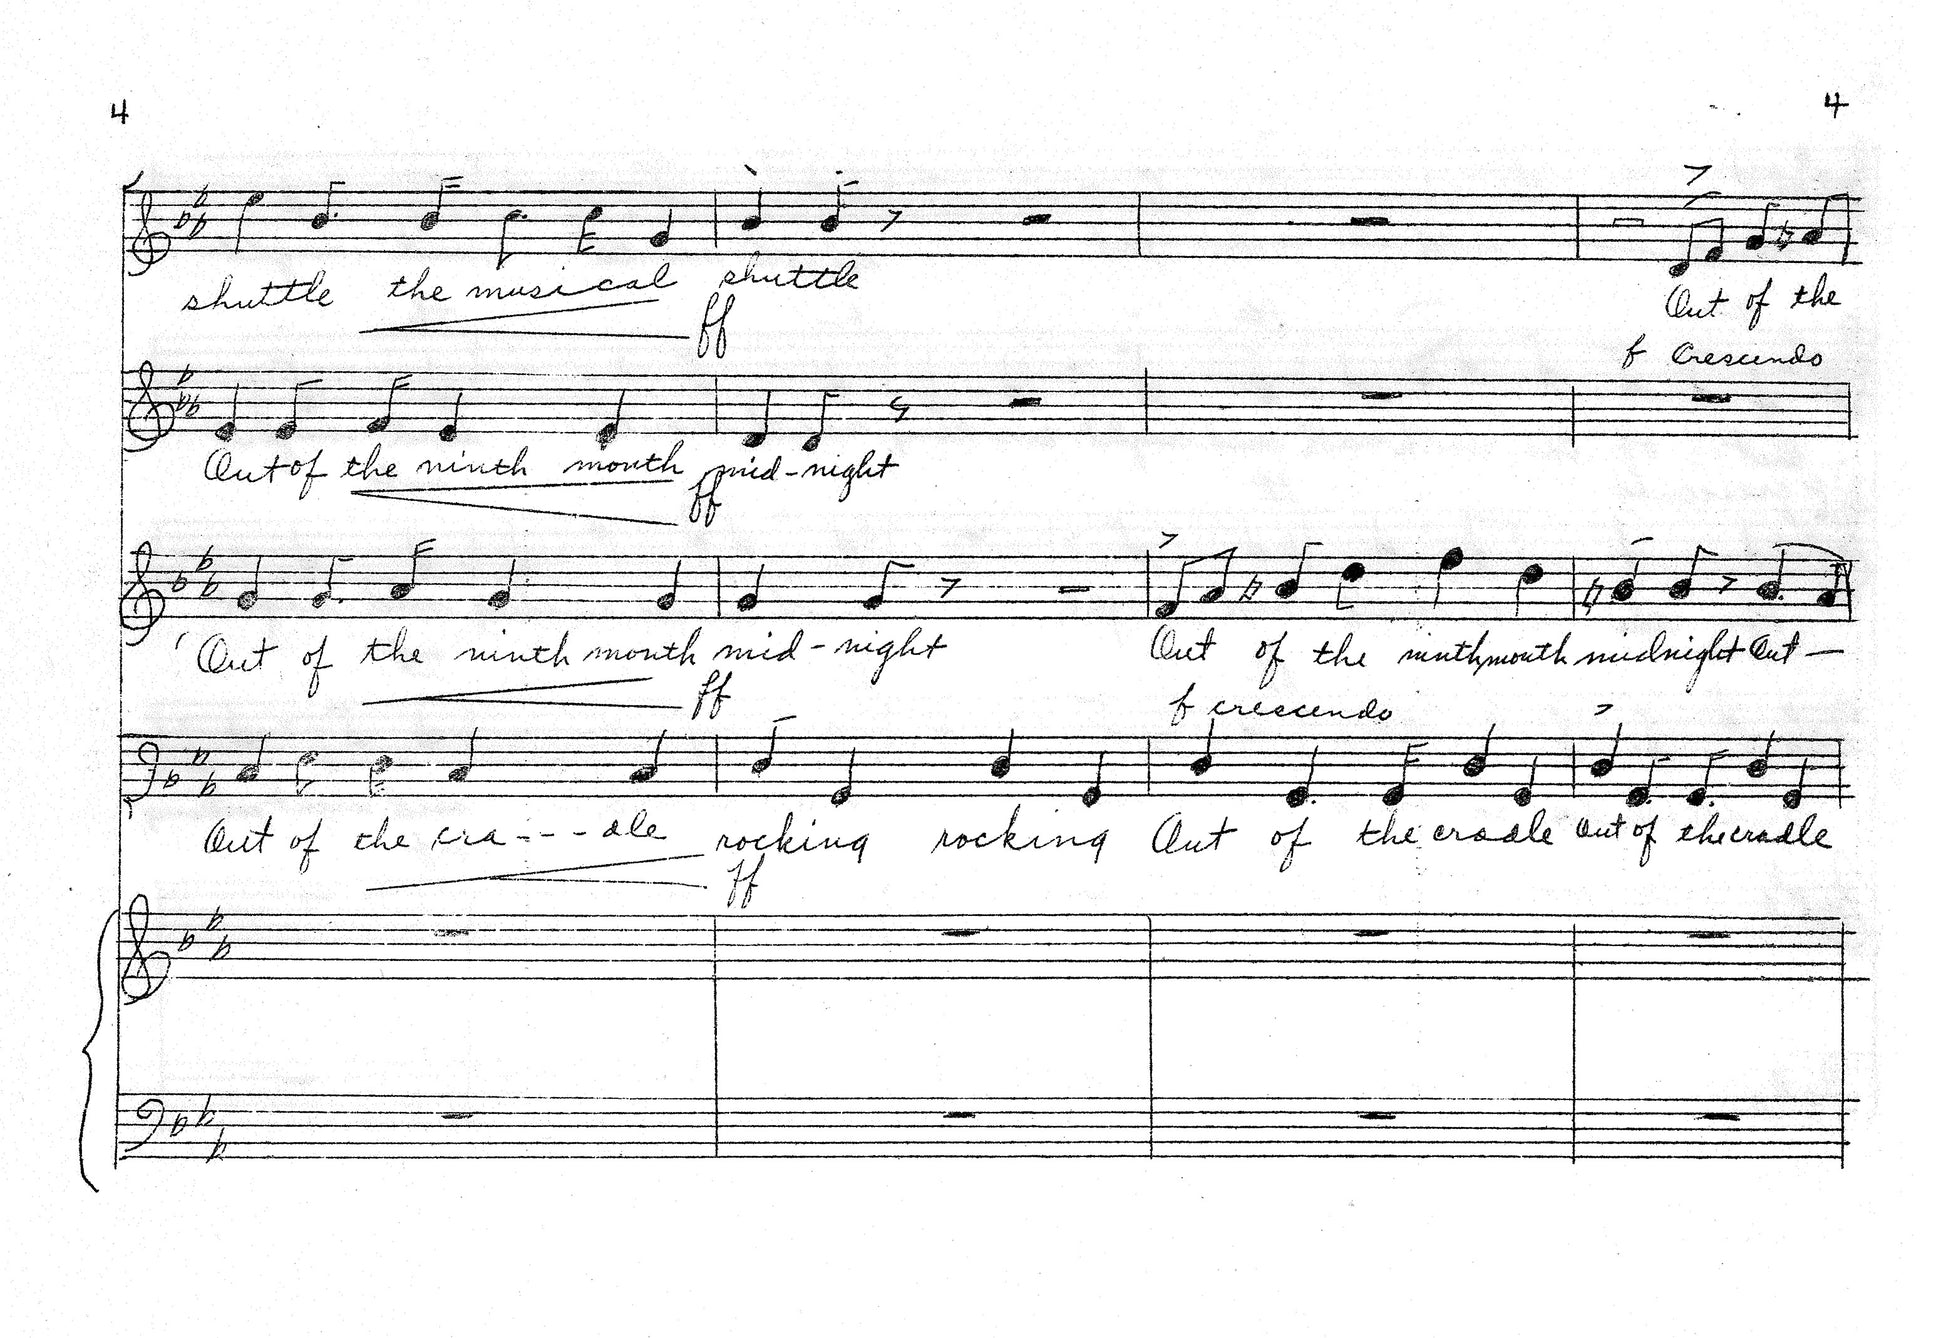 4 4
shuttle the musical shuttle Out of the
ff
f Crescendo
Out of the ninth month mid-night
ff
Out of the ninth month mid-night Out of the ninth month midnight Out —
ff f crescendo
Out of the cra - - - dle rocking rocking Out of the cradle Out of the cradle
ff